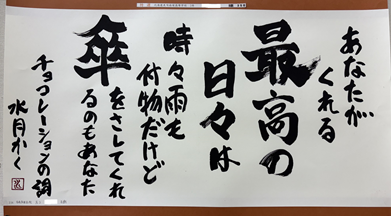 あなたが
くれる
最高の
日々は
時々雨も
付物だけど
傘
をさしてくれ
るのもあなた
チョコレーションの調
水月かく